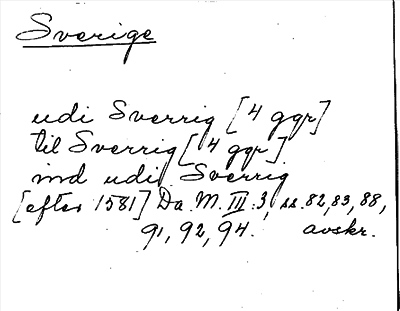 Sverige
udi Sverrig [4 ggr]
til Sverrig [4 ggr]
ind udi Sverrig
[efter 1581] Da. M. III:3, ss. 82, 83, 88,
91, 92, 94. avskr.